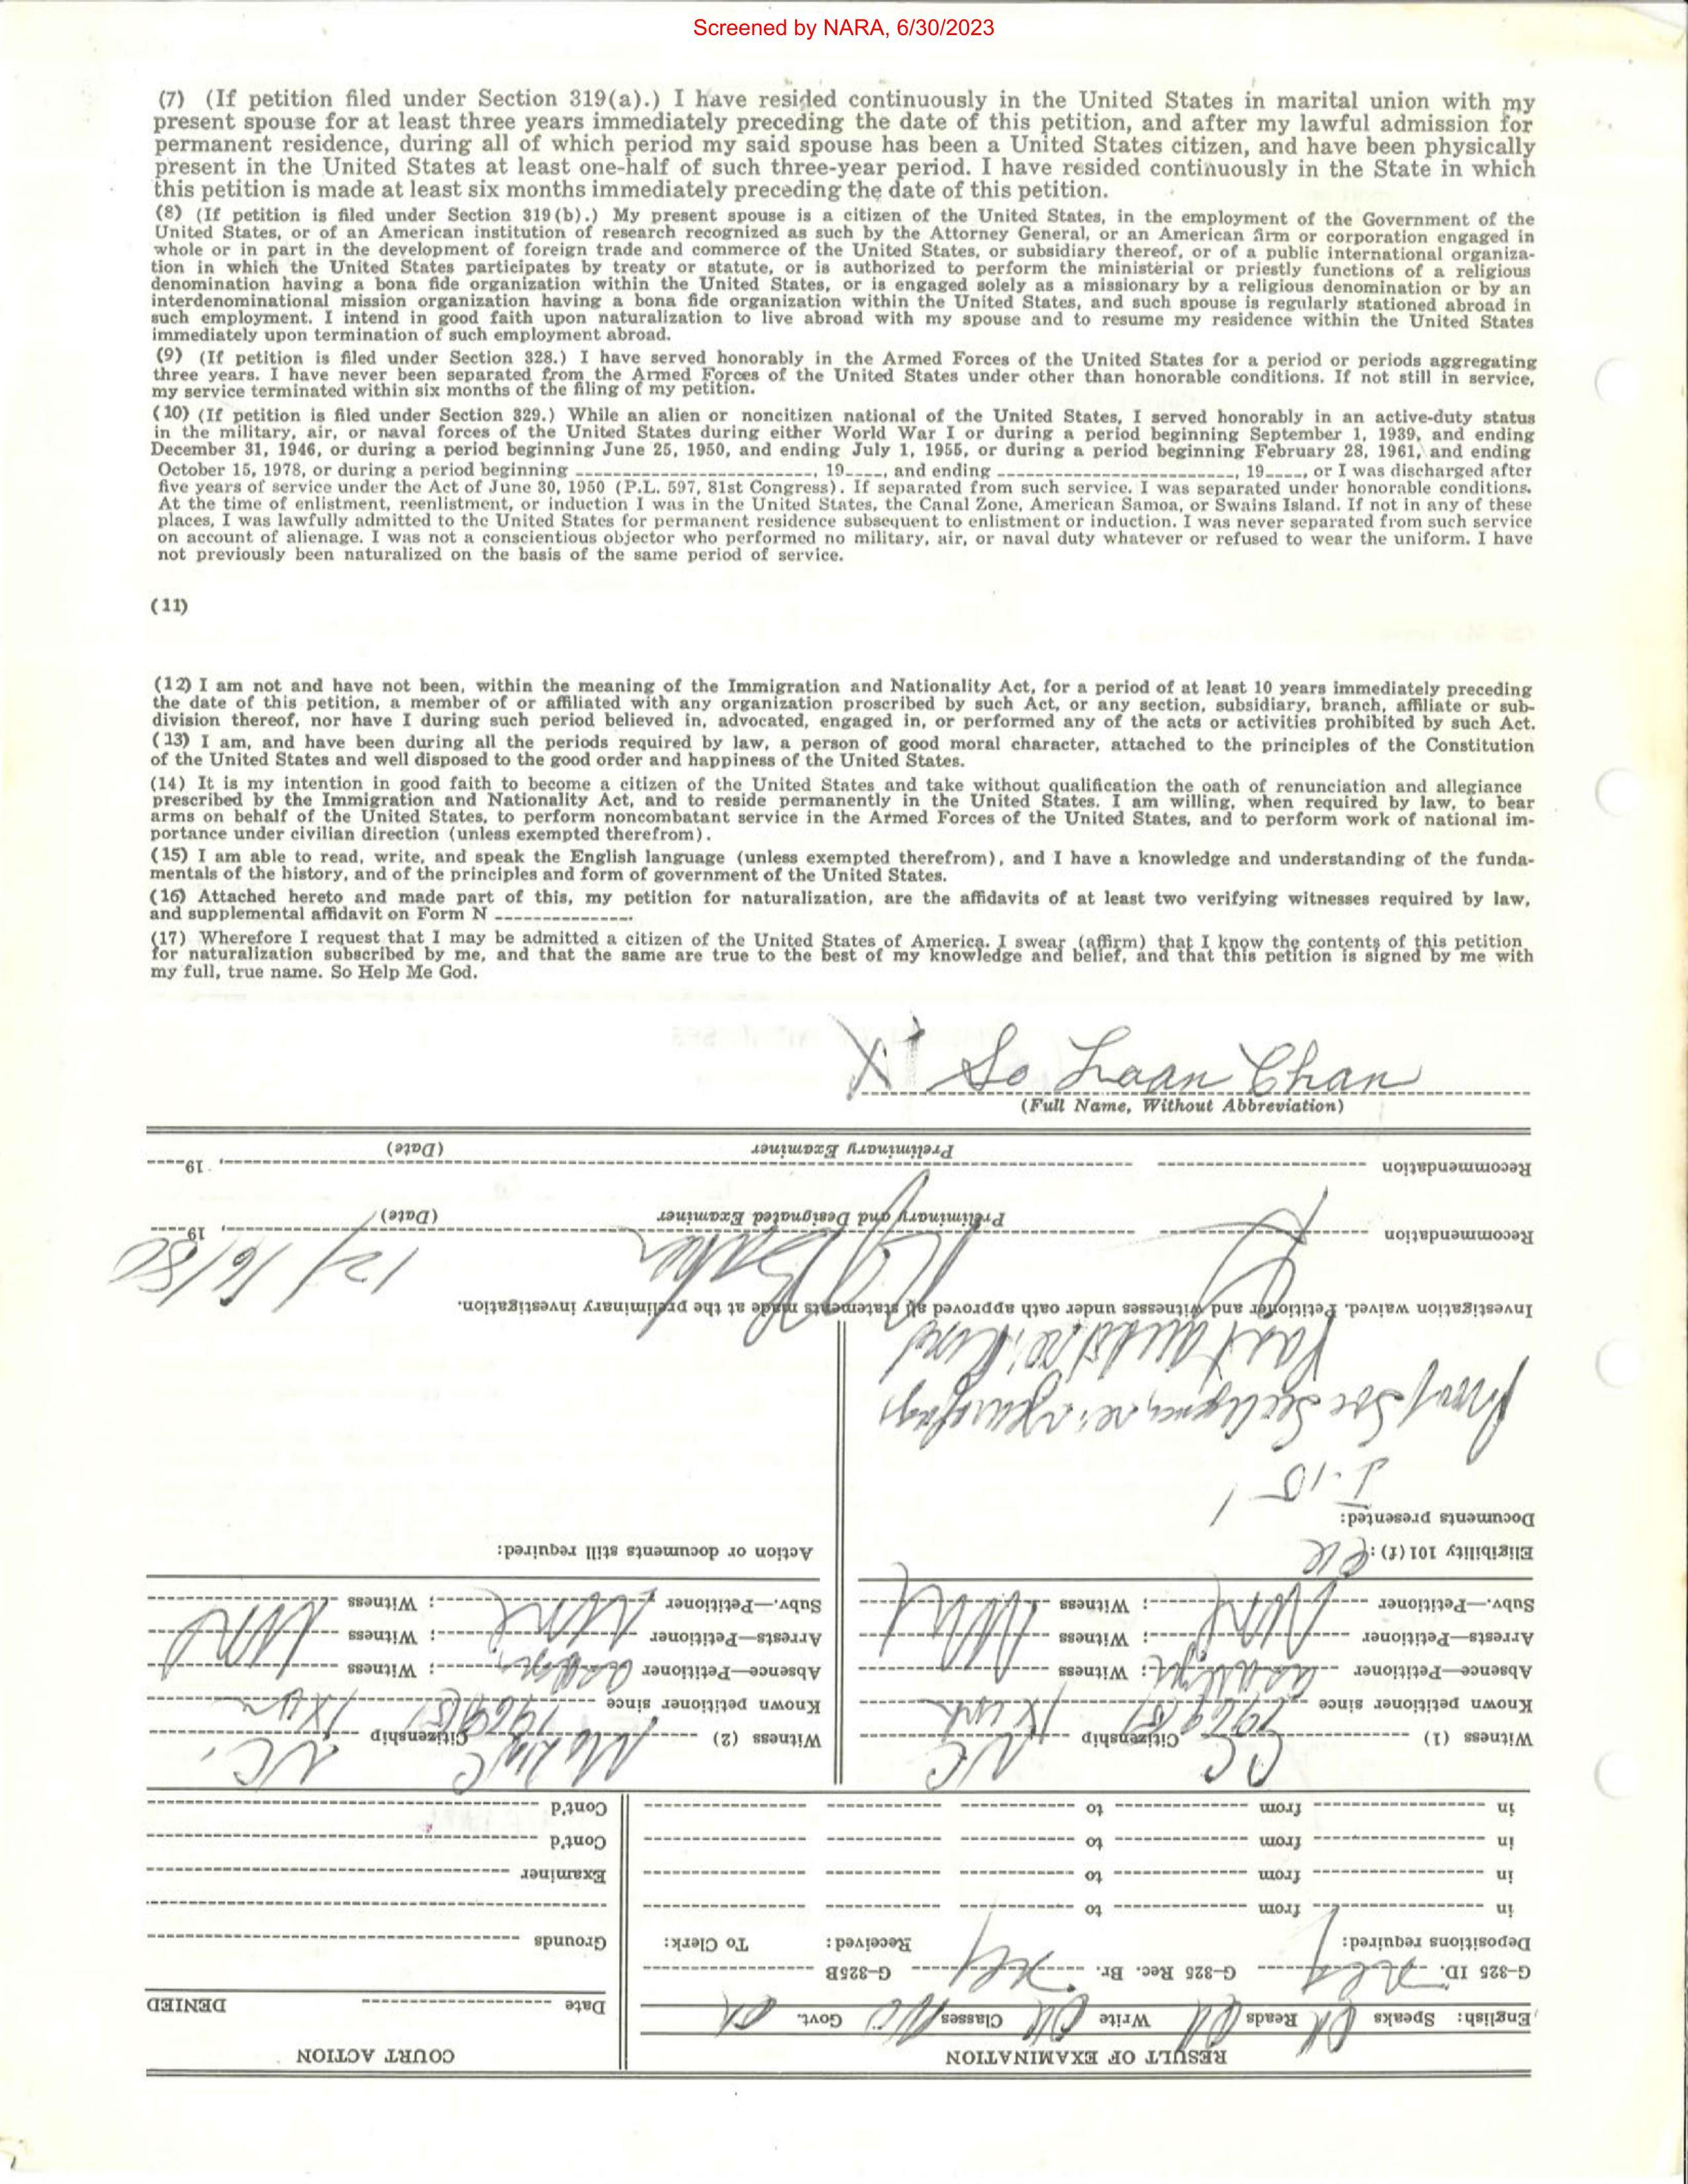 Screened by NARA, 6/30/2023
(7) (If petition filed under Section 319(a).) I have resided continuously in the United States in marital union with my
present spouse for at least three years immediately preceding the date of this petition, and after my lawful admission for
permanent residence, during all of which period my said spouse has been a United States citizen, and have been physically
present in the United States at least one-half of such three-year period. I have resided continuously in the State in which
this petition is made at least six months immediately preceding the date of this petition.
(8) (If petition is filed under Section 319(b).) My present spouse is a citizen of the United States, in the employment of the Government of the
United States, or of an American institution of research recognized as such by the Attorney General, or an American firm or corporation engaged in
whole or in part in the development of foreign trade and commerce of the United States, or subsidiary thereof, or of a public international organiza-
tion in which the United States participates by treaty or statute, or is authorized to perform the ministerial or priestly functions of a religious
denomination having a bona fide organization within the United States, or is engaged solely as a missionary by a religious denomination or by an
interdenominational mission organization having a bona fide organization within the United States, and such spouse is regularly stationed abroad in
such employment. I intend in good faith upon naturalization to live abroad with my spouse and to resume my residence within the United States
immediately upon termination of such employment abroad.
(9) (If petition is filed under Section 328.) I have served honorably in the Armed Forces of the United States for a period or periods aggregating
three years. I have never been separated from the Armed Forces of the United States under other than honorable conditions. If not still in service,
my service terminated within six months of the filing of my petition.
(10) (If petition is filed under Section 329.) While an alien or noncitizen national of the United States, I served honorably in an active-duty status
in the military, air, or naval forces of the United States during either World War I or during a period beginning September 1, 1939, and ending
December 31, 1946, or during a period beginning June 25, 1950, and ending July 1, 1955, or during a period beginning February 28, 1961, and ending
October 15, 1978, or during a period beginning ______, 19____, and ending ______, 19____, or I was discharged after
five years of service under the Act of June 30, 1950 (P.L. 597, 81st Congress). If separated from such service, I was separated under honorable conditions.
At the time of enlistment, reenlistment, or induction I was in the United States, the Canal Zone, American Samoa, or Swains Island. If not in any of these
places, I was lawfully admitted to the United States for permanent residence subsequent to enlistment or induction. I was never separated from such service
on account of alienage. I was not a conscientious objector who performed no military, air, or naval duty whatever or refused to wear the uniform. I have
not previously been naturalized on the basis of the same period of service.
(11)
(12) I am not and have not been, within the meaning of the Immigration and Nationality Act, for a period of at least 10 years immediately preceding
the date of this petition, a member of or affiliated with any organization proscribed by such Act, or any section, subsidiary, branch, affiliate or sub-
division thereof, nor have I during such period believed in, advocated, engaged in, or performed any of the acts or activities prohibited by such Act.
(13) I am, and have been during all the periods required by law, a person of good moral character, attached to the principles of the Constitution
of the United States and well disposed to the good order and happiness of the United States.
(14) It is my intention in good faith to become a citizen of the United States and take without qualification the oath of renunciation and allegiance
prescribed by the Immigration and Nationality Act, and to reside permanently in the United States. I am willing, when required by law, to bear
arms on behalf of the United States, to perform noncombatant service in the Armed Forces of the United States, and to perform work of national im-
portance under civilian direction (unless exempted therefrom).
(15) I am able to read, write, and speak the English language (unless exempted therefrom), and I have a knowledge and understanding of the funda-
mentals of the history, and of the principles and form of government of the United States.
(16) Attached hereto and made part of this, my petition for naturalization, are the affidavits of at least two verifying witnesses required by law,
and supplemental affidavit on Form N ______.
(17) Wherefore I request that I may be admitted a citizen of the United States of America. I swear (affirm) that I know the contents of this petition
for naturalization subscribed by me, and that the same are true to the best of my knowledge and belief, and that this petition is signed by me with
my full, true name. So Help Me God.
X So Loan Chan
(Full Name, Without Abbreviation)
RESULT OF EXAMINATION
English: Speaks OK Reads OK Write OK Classes Govt. OK
G-325 ID. G-325 Rec. Br. G-325B
Depositions required: Received: To Clerk:
in from to
in from to
in from to
in from to
COURT ACTION
Date DENIED
Grounds
Examiner
Cont'd
Cont'd
Witness (1) Citizenship NC
Known petitioner since 1969
Absence—Petitioner Witness
Arrests—Petitioner None; Witness None
Subv.—Petitioner Witness
Eligibility 101(f): OK
Documents presented:
I-151
Witness (2) Citizenship NC
Known petitioner since 1969
Absence—Petitioner Witness
Arrests—Petitioner None; Witness None
Subv.—Petitioner Witness
Action or documents still required:
Investigation waived. Petitioner and witnesses under oath approved all statements made at the preliminary investigation.
12/16/80
Recommendation 19
Preliminary and Designated Examiner (Date)
Recommendation 19
Preliminary Examiner (Date)